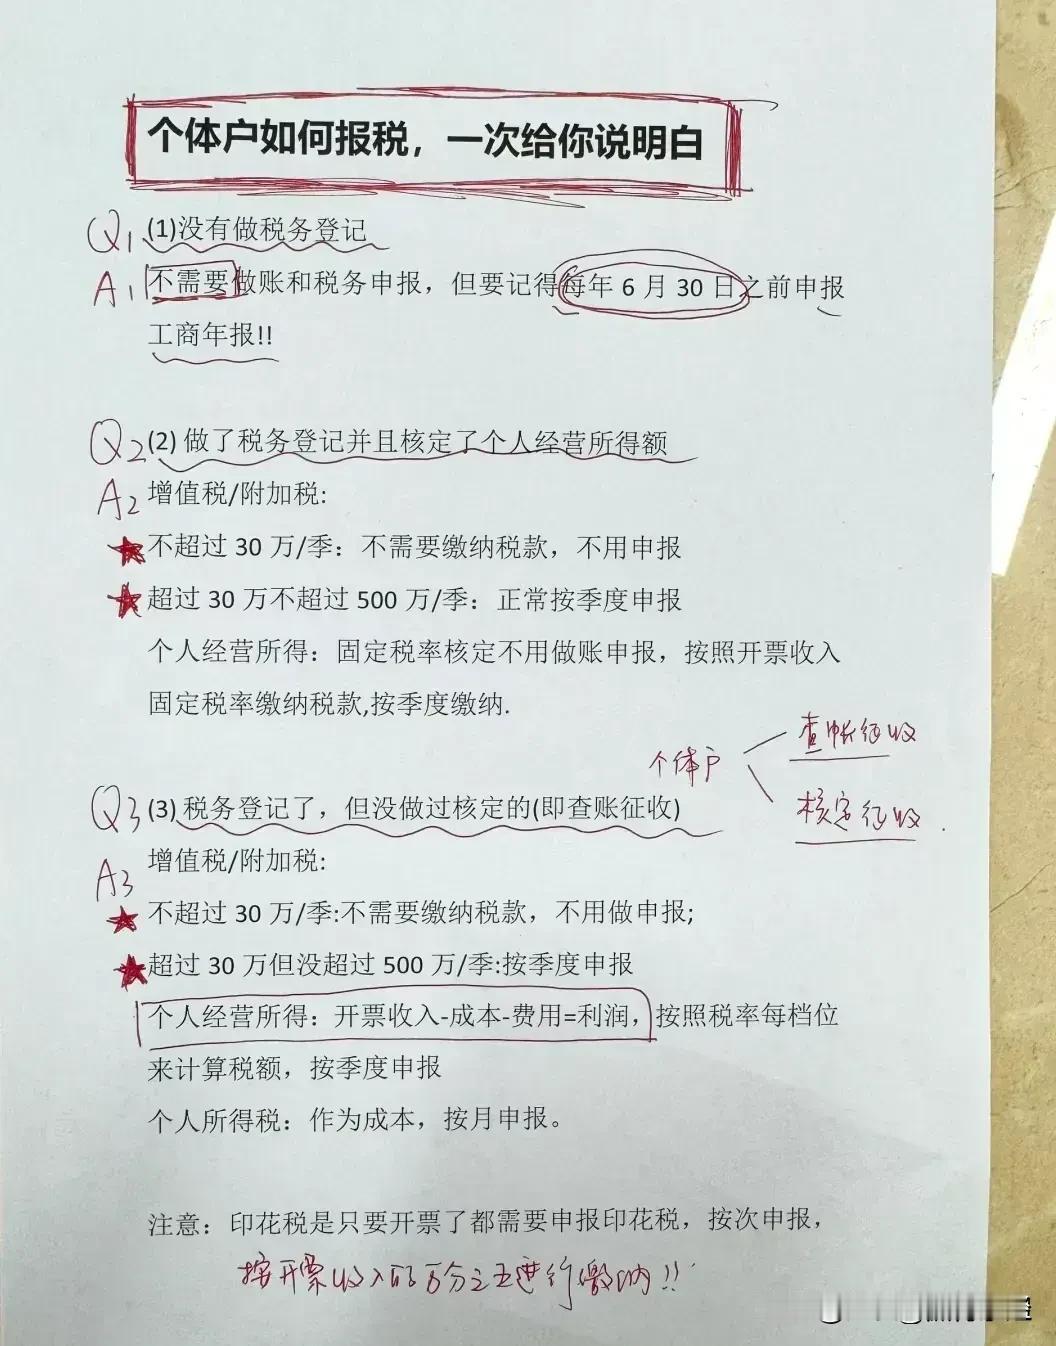 个体户如何报税，一次给你说明白
Q1 (1)没有做税务登记
A1 不需要做账和税务申报，但要记得每年 6 月 30 日之前申报
工商年报!!
Q2 (2) 做了税务登记并且核定了个人经营所得额
A2 增值税/附加税:
不超过 30 万/季：不需要缴纳税款，不用申报
超过 30 万不超过 500 万/季：正常按季度申报
个人经营所得：固定税率核定不用做账申报，按照开票收入
固定税率缴纳税款,按季度缴纳.
个体户
查帐征收
核定征收.
Q3 (3) 税务登记了，但没做过核定的(即查账征收)
A3 增值税/附加税:
不超过 30 万/季:不需要缴纳税款，不用做申报;
超过 30 万但没超过 500 万/季:按季度申报
个人经营所得：开票收入-成本-费用=利润，按照税率每档位
来计算税额，按季度申报
个人所得税：作为成本，按月申报。
注意：印花税是只要开票了都需要申报印花税，按次申报，
按开票收入的万分之五进行缴纳!!